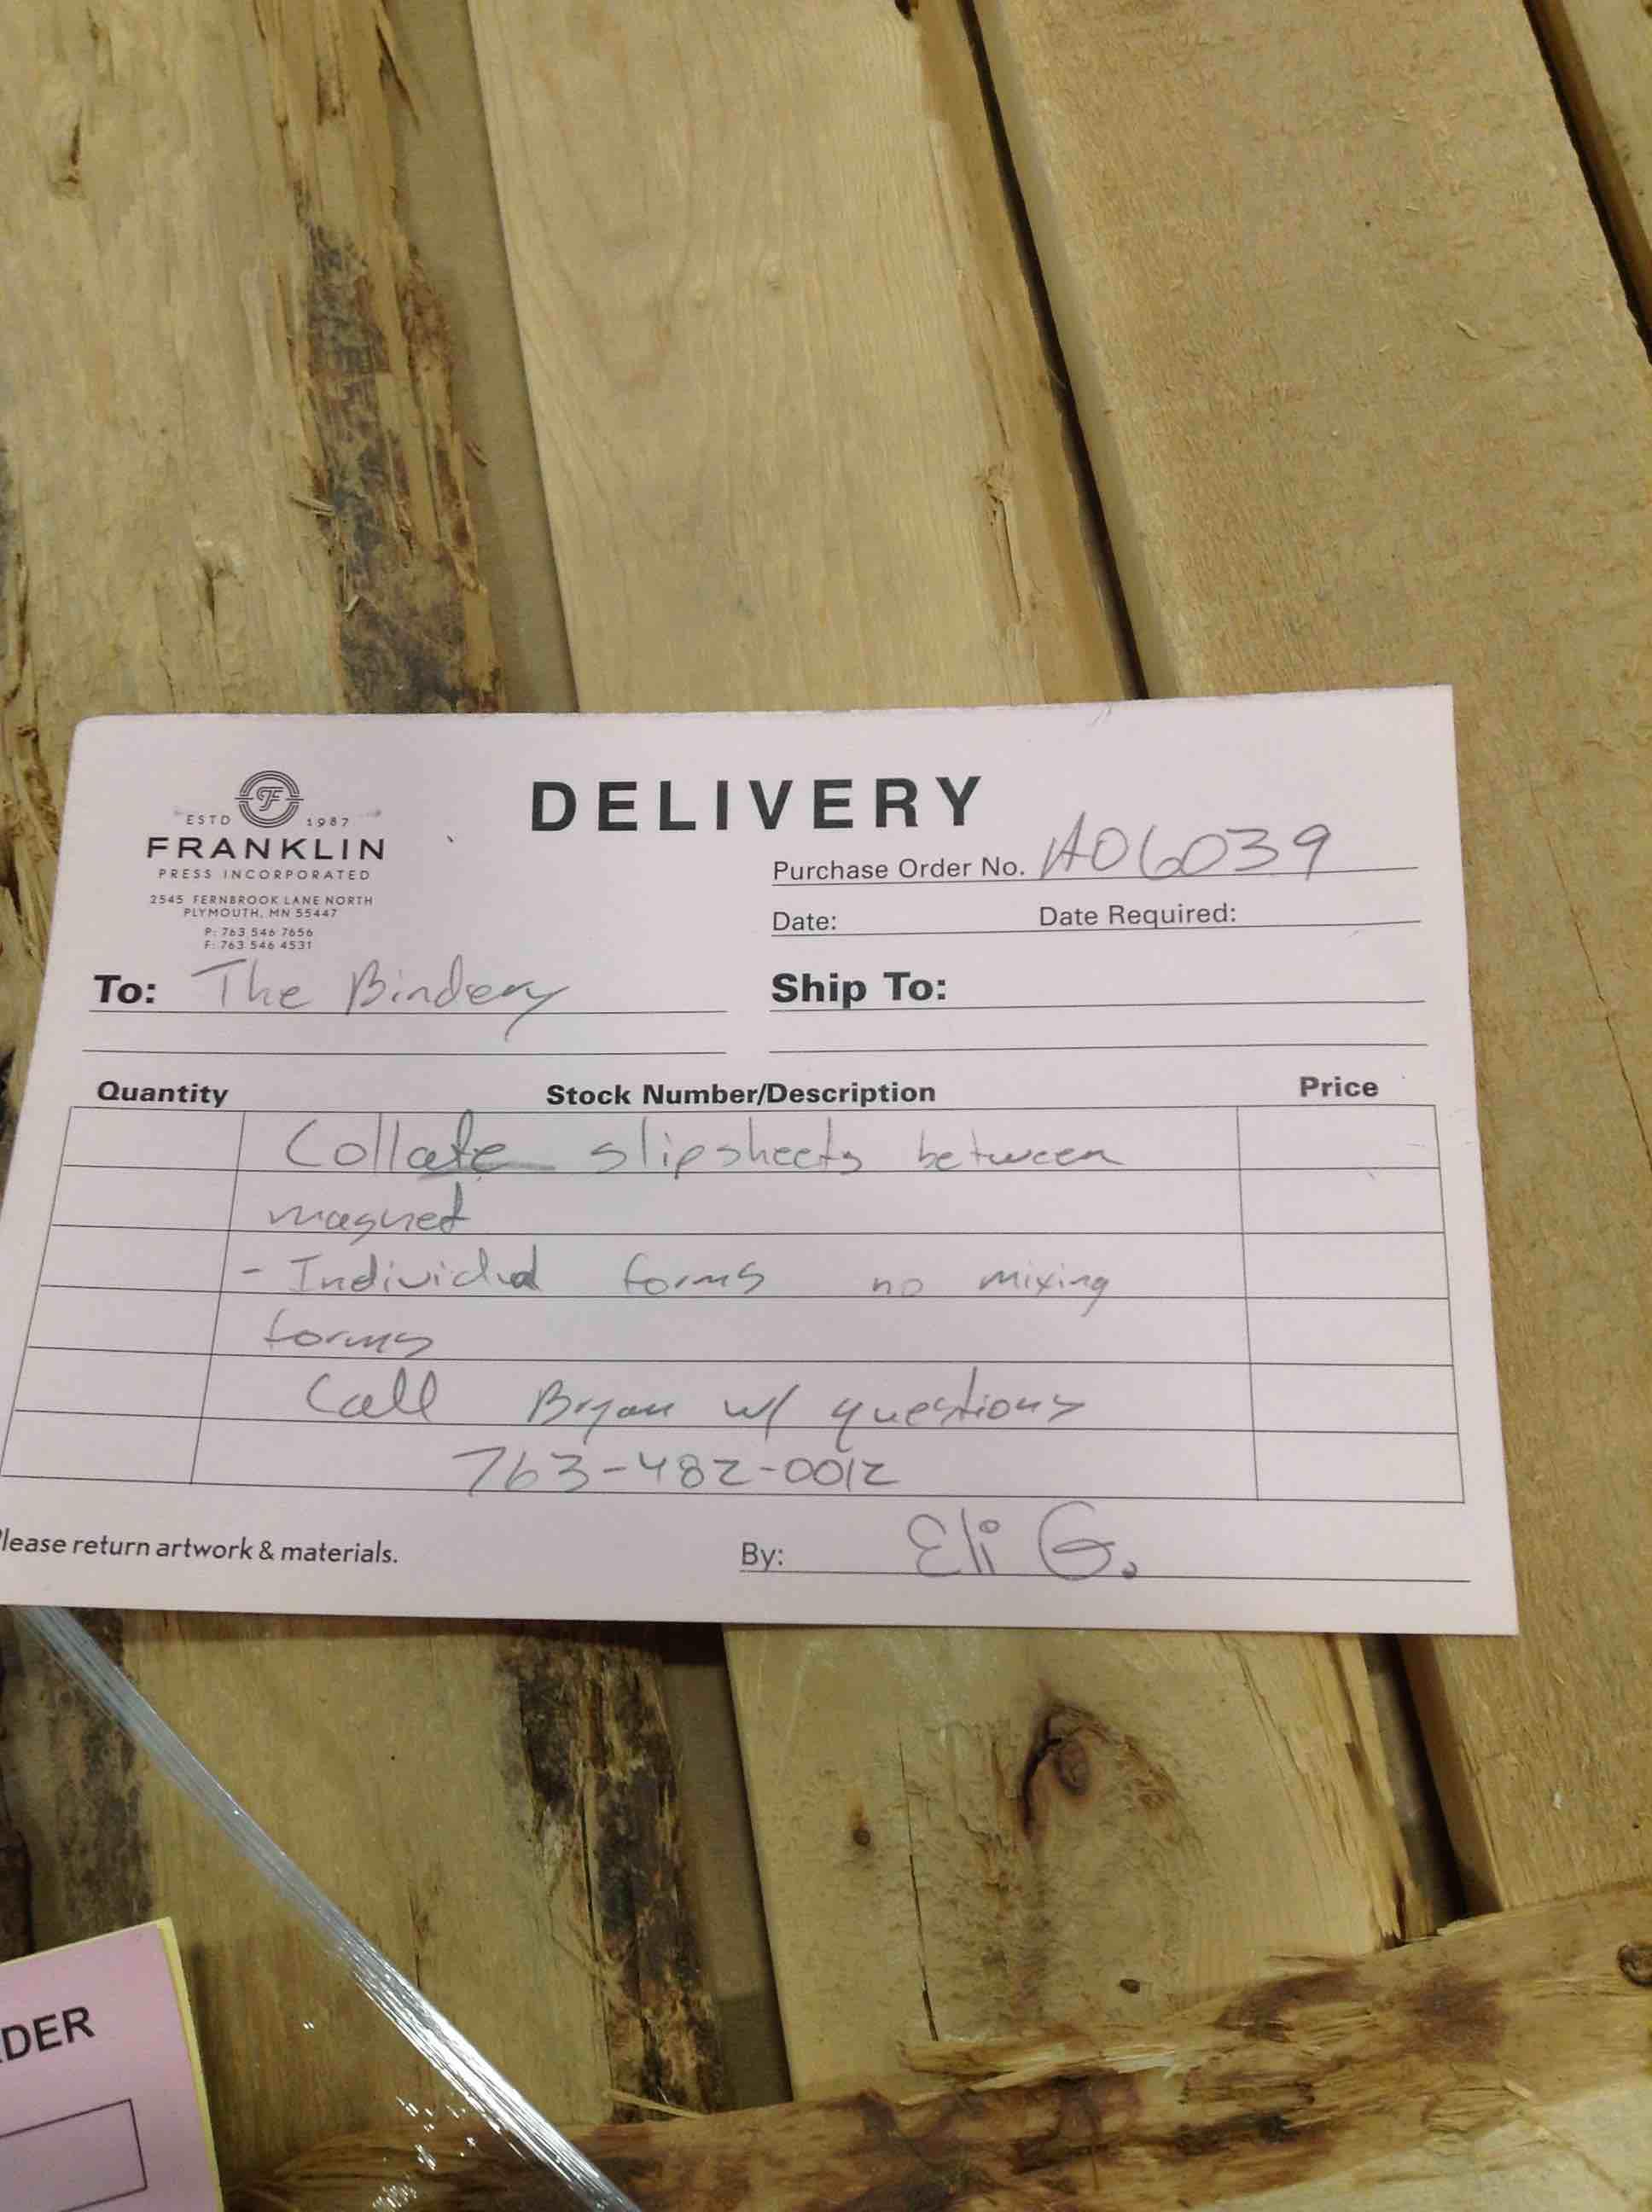 ESTD 1987
FRANKLIN
PRESS INCORPORATED
2545 FERNBROOK LANE NORTH
PLYMOUTH, MN 55447
P: 763 546 7656
F: 763 546 4531
DELIVERY
Purchase Order No. A06039
Date: Date Required:
To: The Bindery
Ship To:
Quantity Stock Number/Description Price
Collate slipsheets between
magnet
- Individual forms no mixing
forms
Call Bryan w/ questions
763-482-0012
lease return artwork & materials.
By: Eli G.
DER